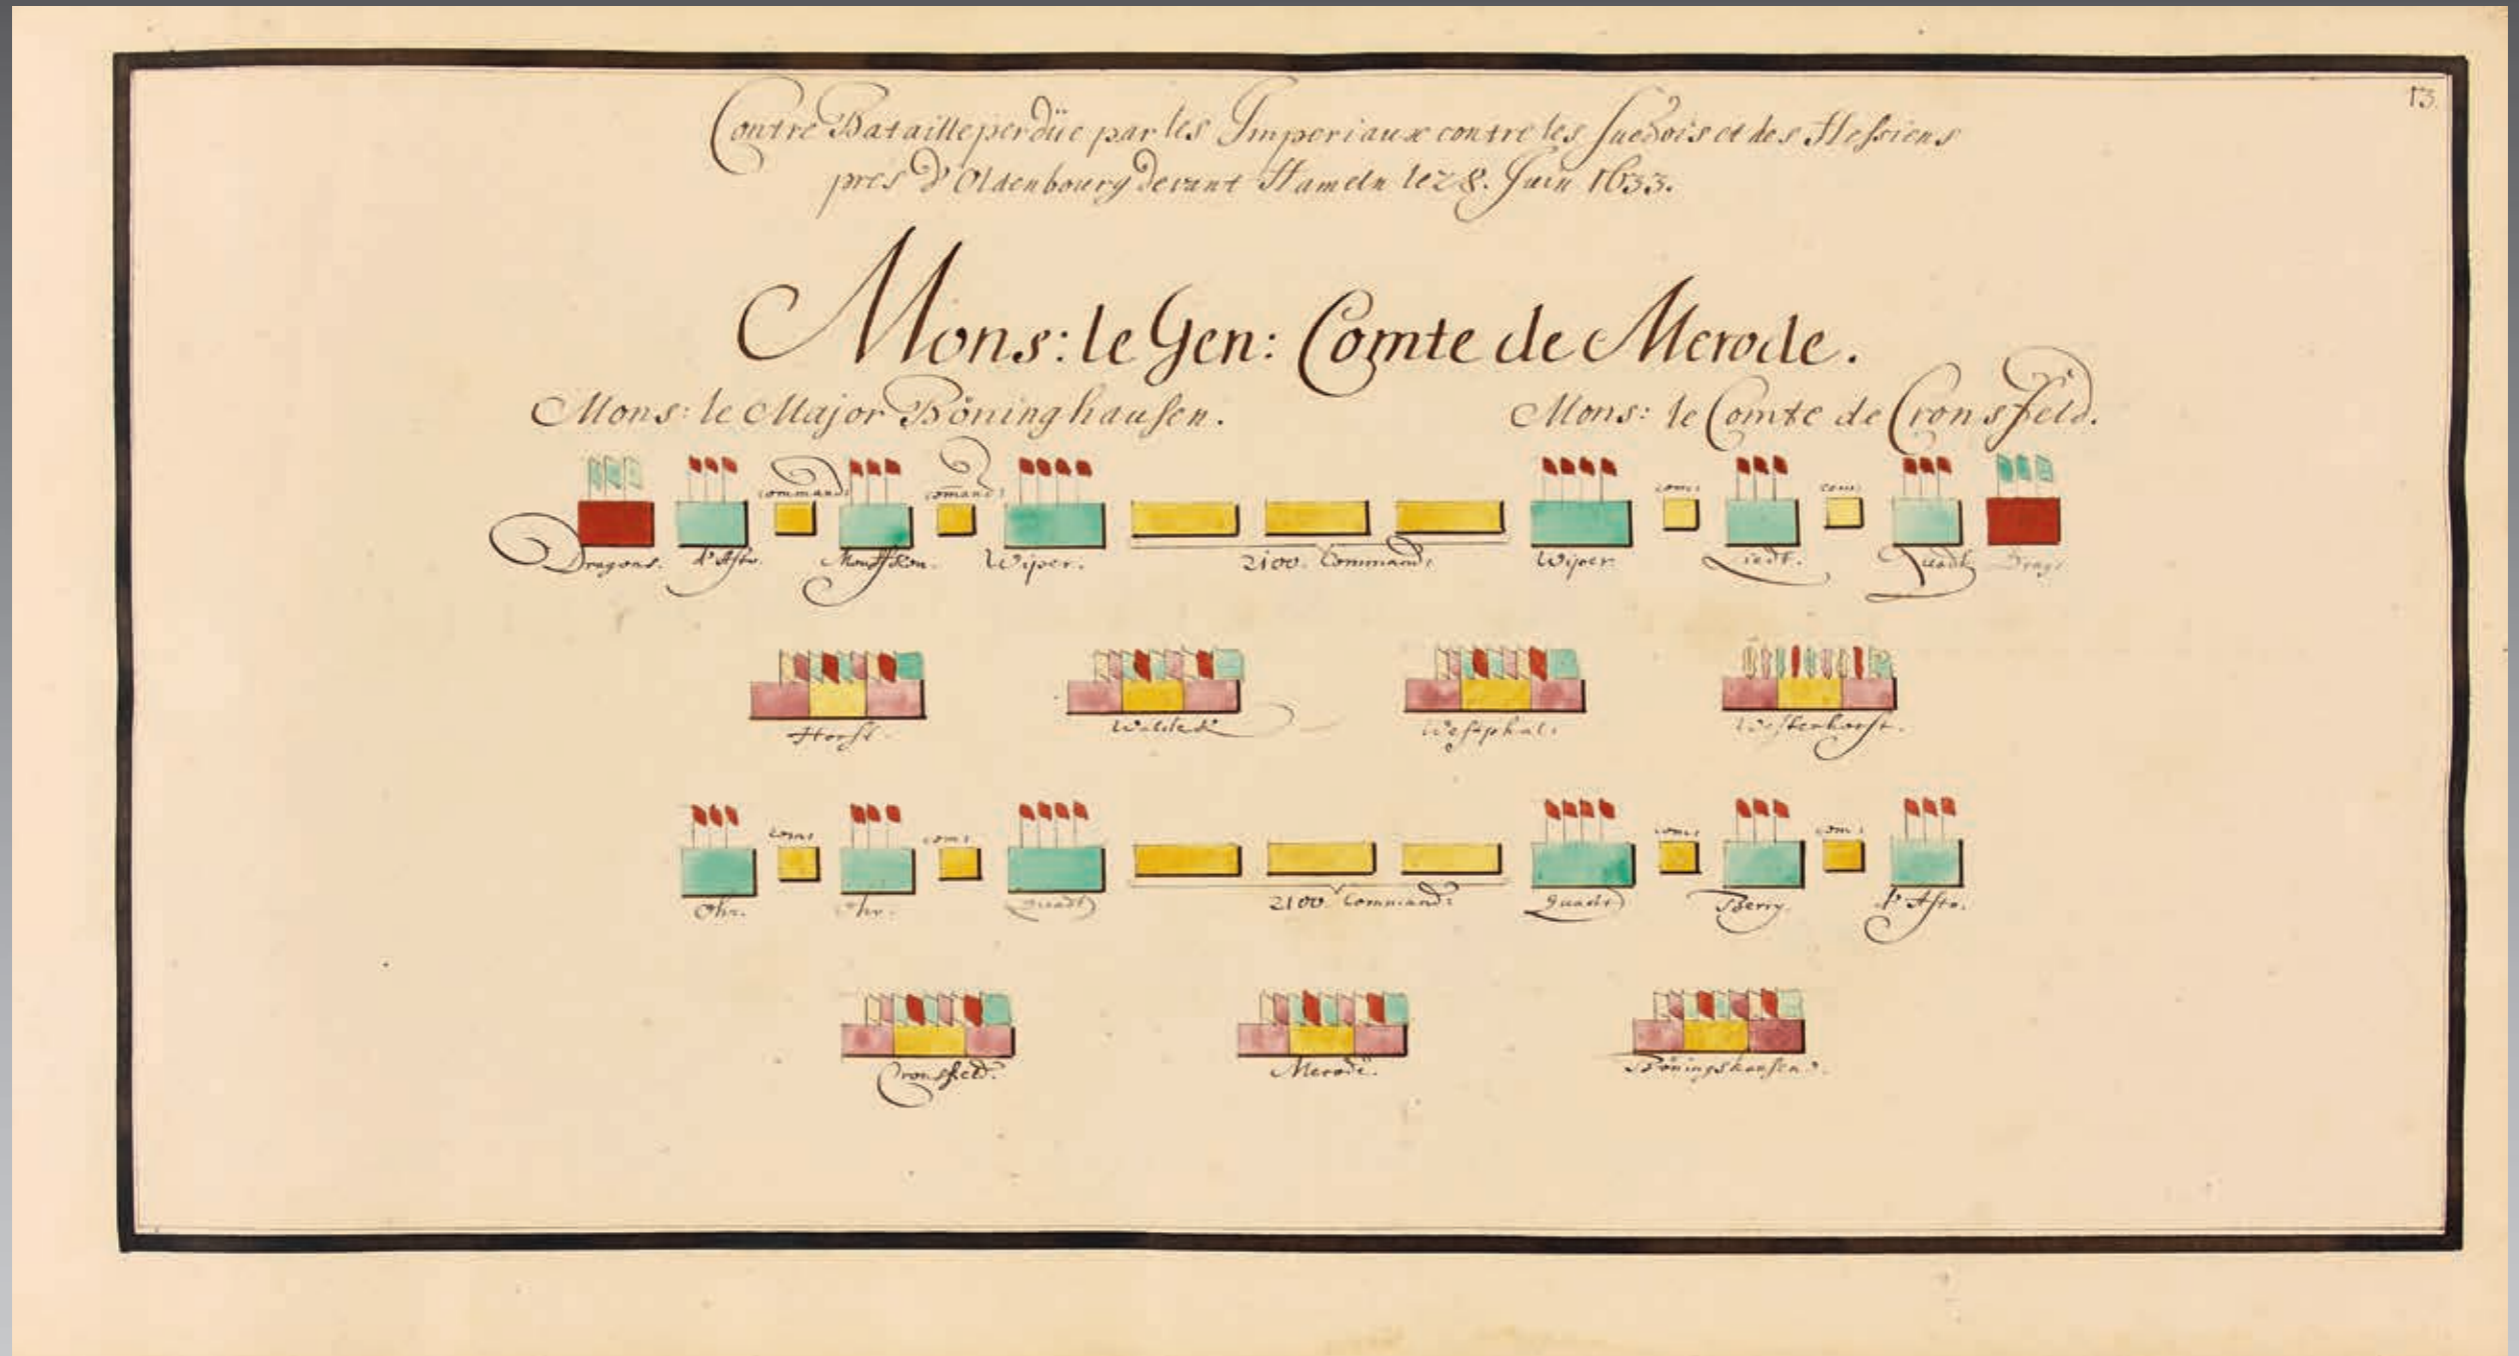 13.
Contre Bataille perdüe par les Imperiaux contre les Suedois et des Hessiens
pres d'Oldenbourg devant Hameln le 28. Juin 1633.
Mons: le Gen: Comte de Merode.
Mons: le Major Böninghausen. Mons: le Comte de Cronsfeld.
command: comand: com: com:
Dragons. d'Asto. Wiper. 2100. Command: Wiper. Quadt Drag:
Horst. Waldeck Westphal: Westerhorst.
com: com: com: com:
Ohr. Ohr. Quadt 2100. Command: Quadt Berry. d'Asto.
Cronsfeld. Merode. Böningshausen.